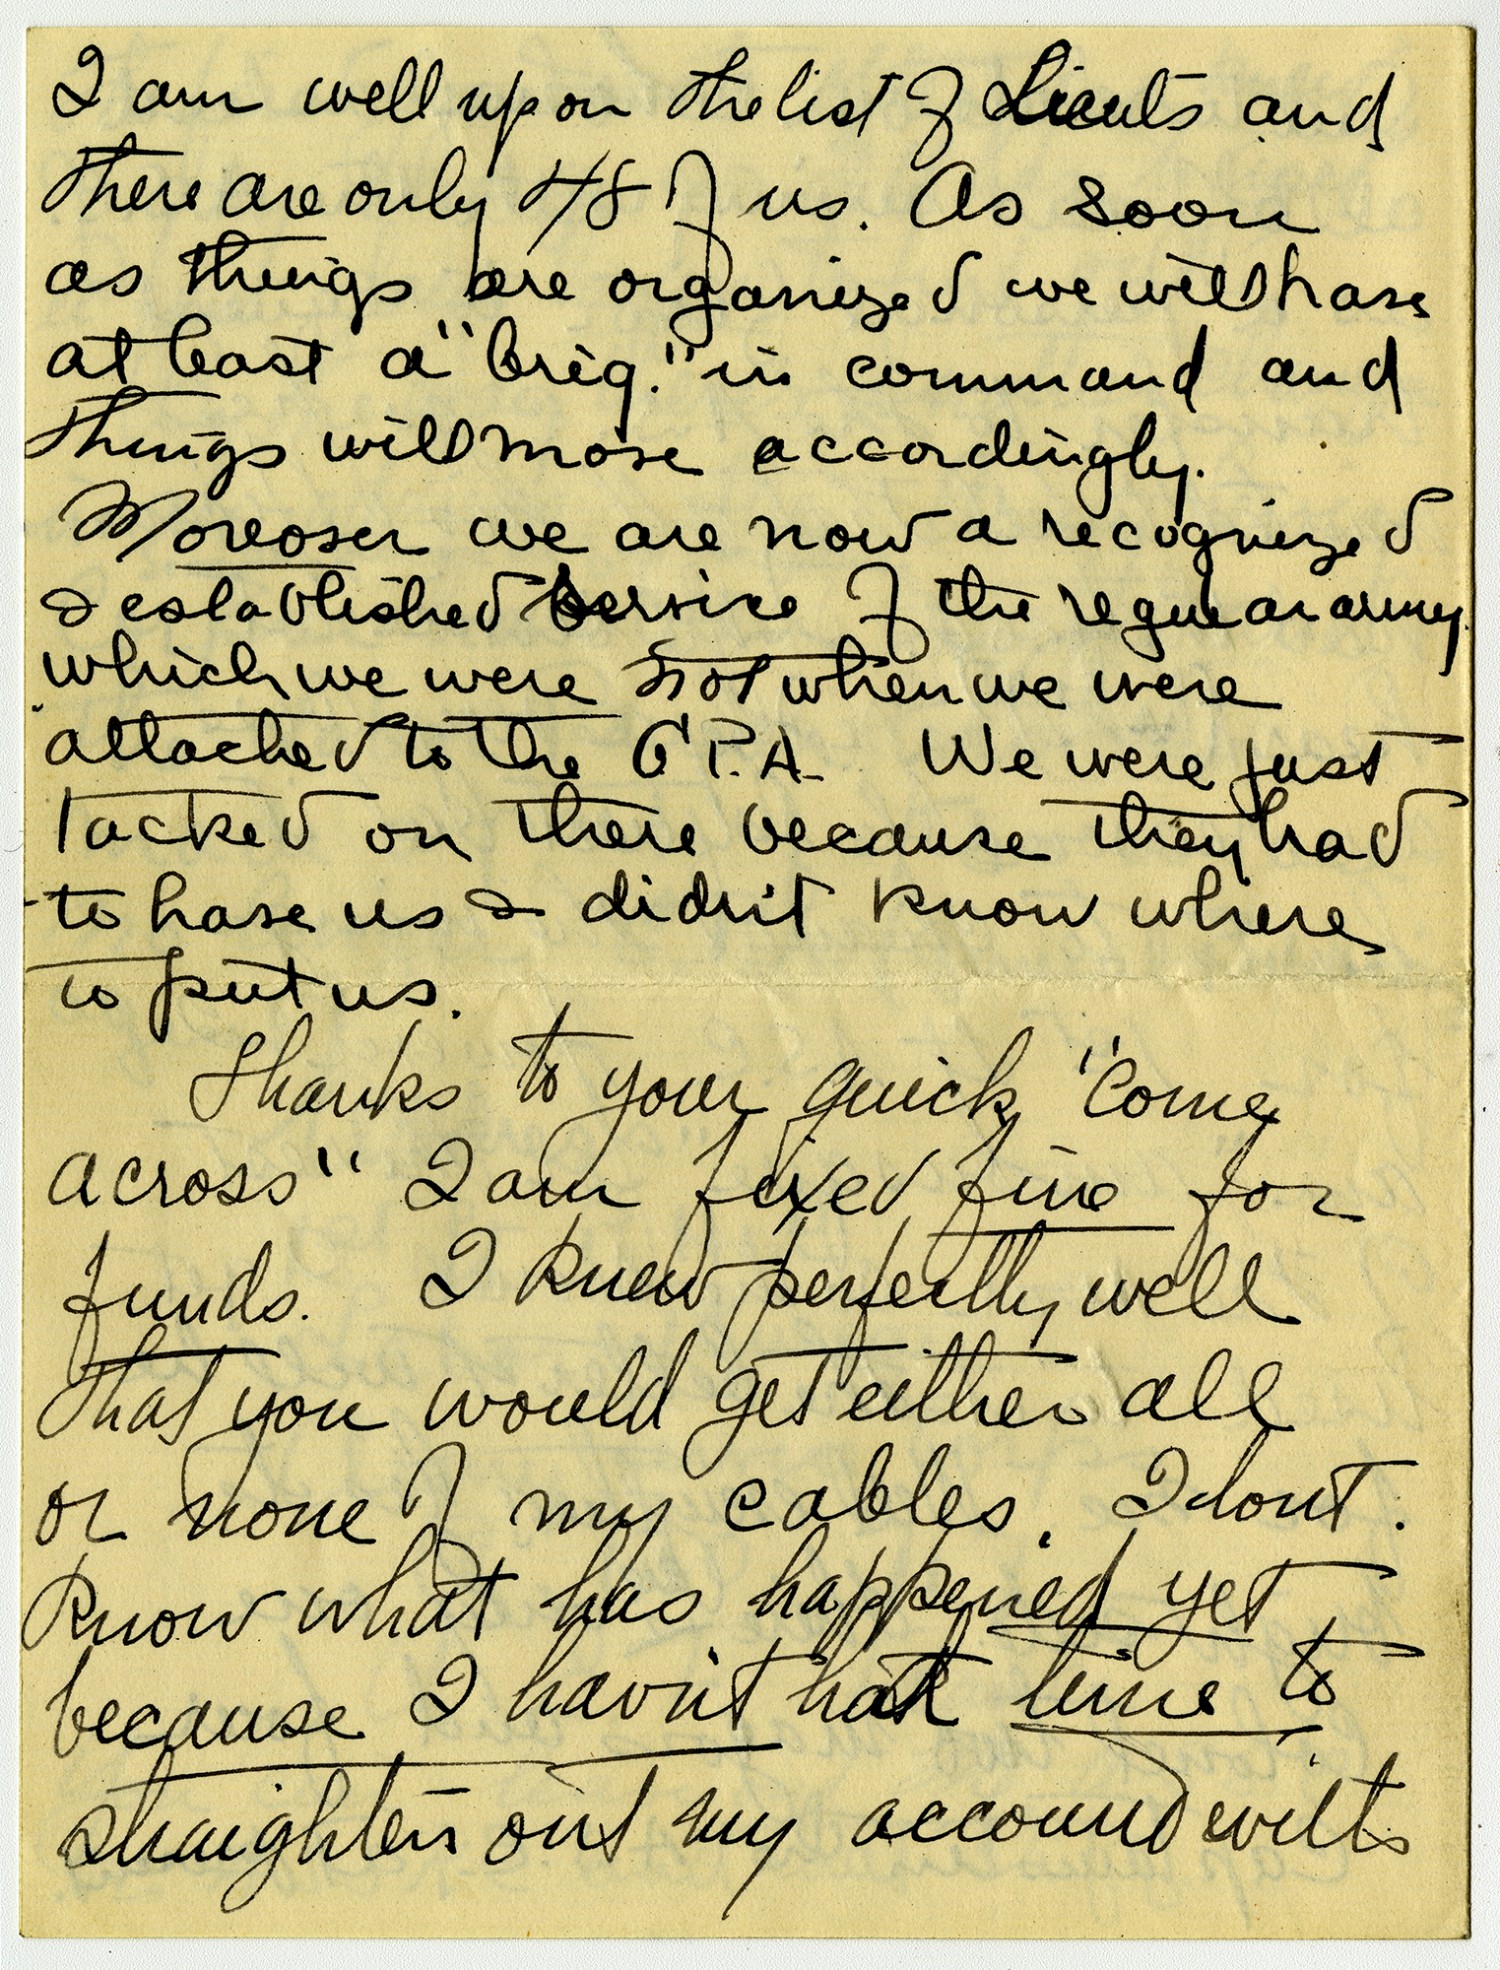 I am well up on the list of Lieuts and
there are only 48 of us. As soon
as things are organized we will have
at least a "brig." in command and
things will move accordingly.
Moreover we are now a recognized
& established service of the regular army
which we were not when we were
attached to the G.P.A. We were just
tacked on there because they had
to have us & didn't know where
to put us.
Thanks to your quick "come
across" I am fixed fine for
funds. I knew perfectly well
that you would get either all
or none of my cables. I dont
know what has happened yet
because I havn't had time to
straighten out my account with